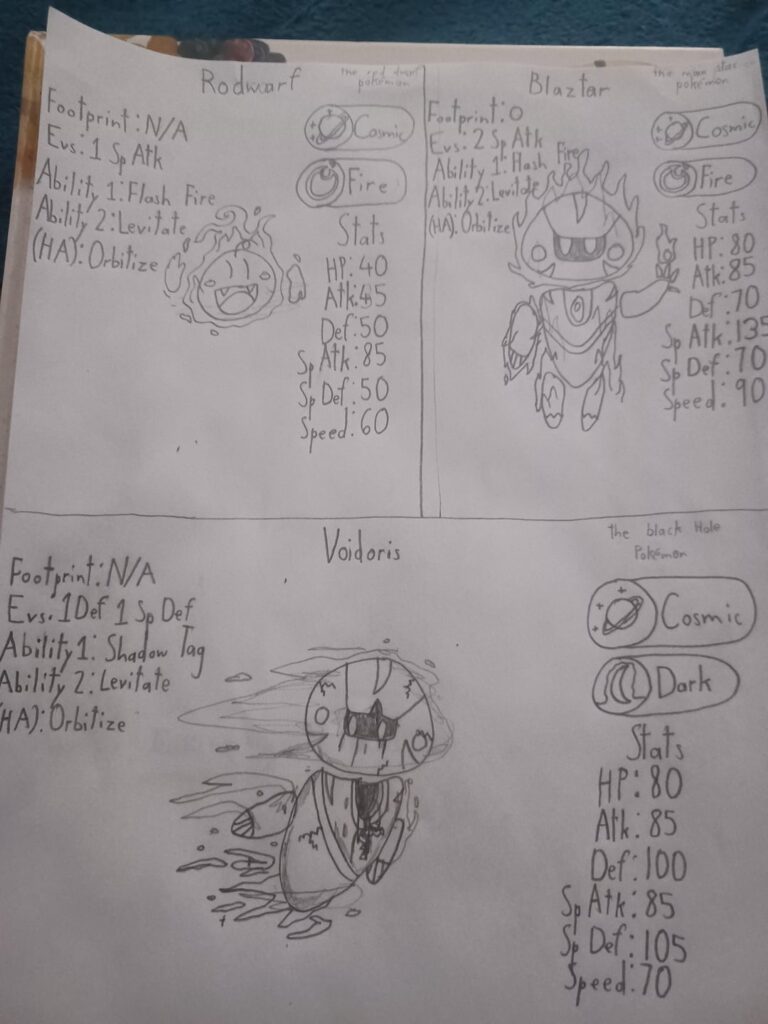 Rodwarf
the red dwarf
pokémon
Footprint: N/A
Evs: 1 Sp Atk
Ability 1: Flash Fire
Ability 2: Levitate
(HA): Orbitize
Cosmic
Fire
Stats
HP: 40
Atk: 45
Def: 50
Sp Atk: 85
Sp Def: 50
Speed: 60
Blaztar
the main star
pokémon
Footprint: O
Evs: 2 Sp Atk
Ability 1: Flash Fire
Ability 2: Levitate
(HA): Orbitize
Cosmic
Fire
Stats
HP: 80
Atk: 85
Def: 70
Sp Atk: 135
Sp Def: 70
Speed: 90
Voidoris
the black Hole
Pokémon
Footprint: N/A
Evs. 1 Def 1 Sp Def
Ability 1: Shadow Tag
Ability 2: Levitate
(HA): Orbitize
Cosmic
Dark
Stats
HP: 80
Atk: 85
Def: 100
Sp Atk: 85
Sp Def: 105
Speed: 70